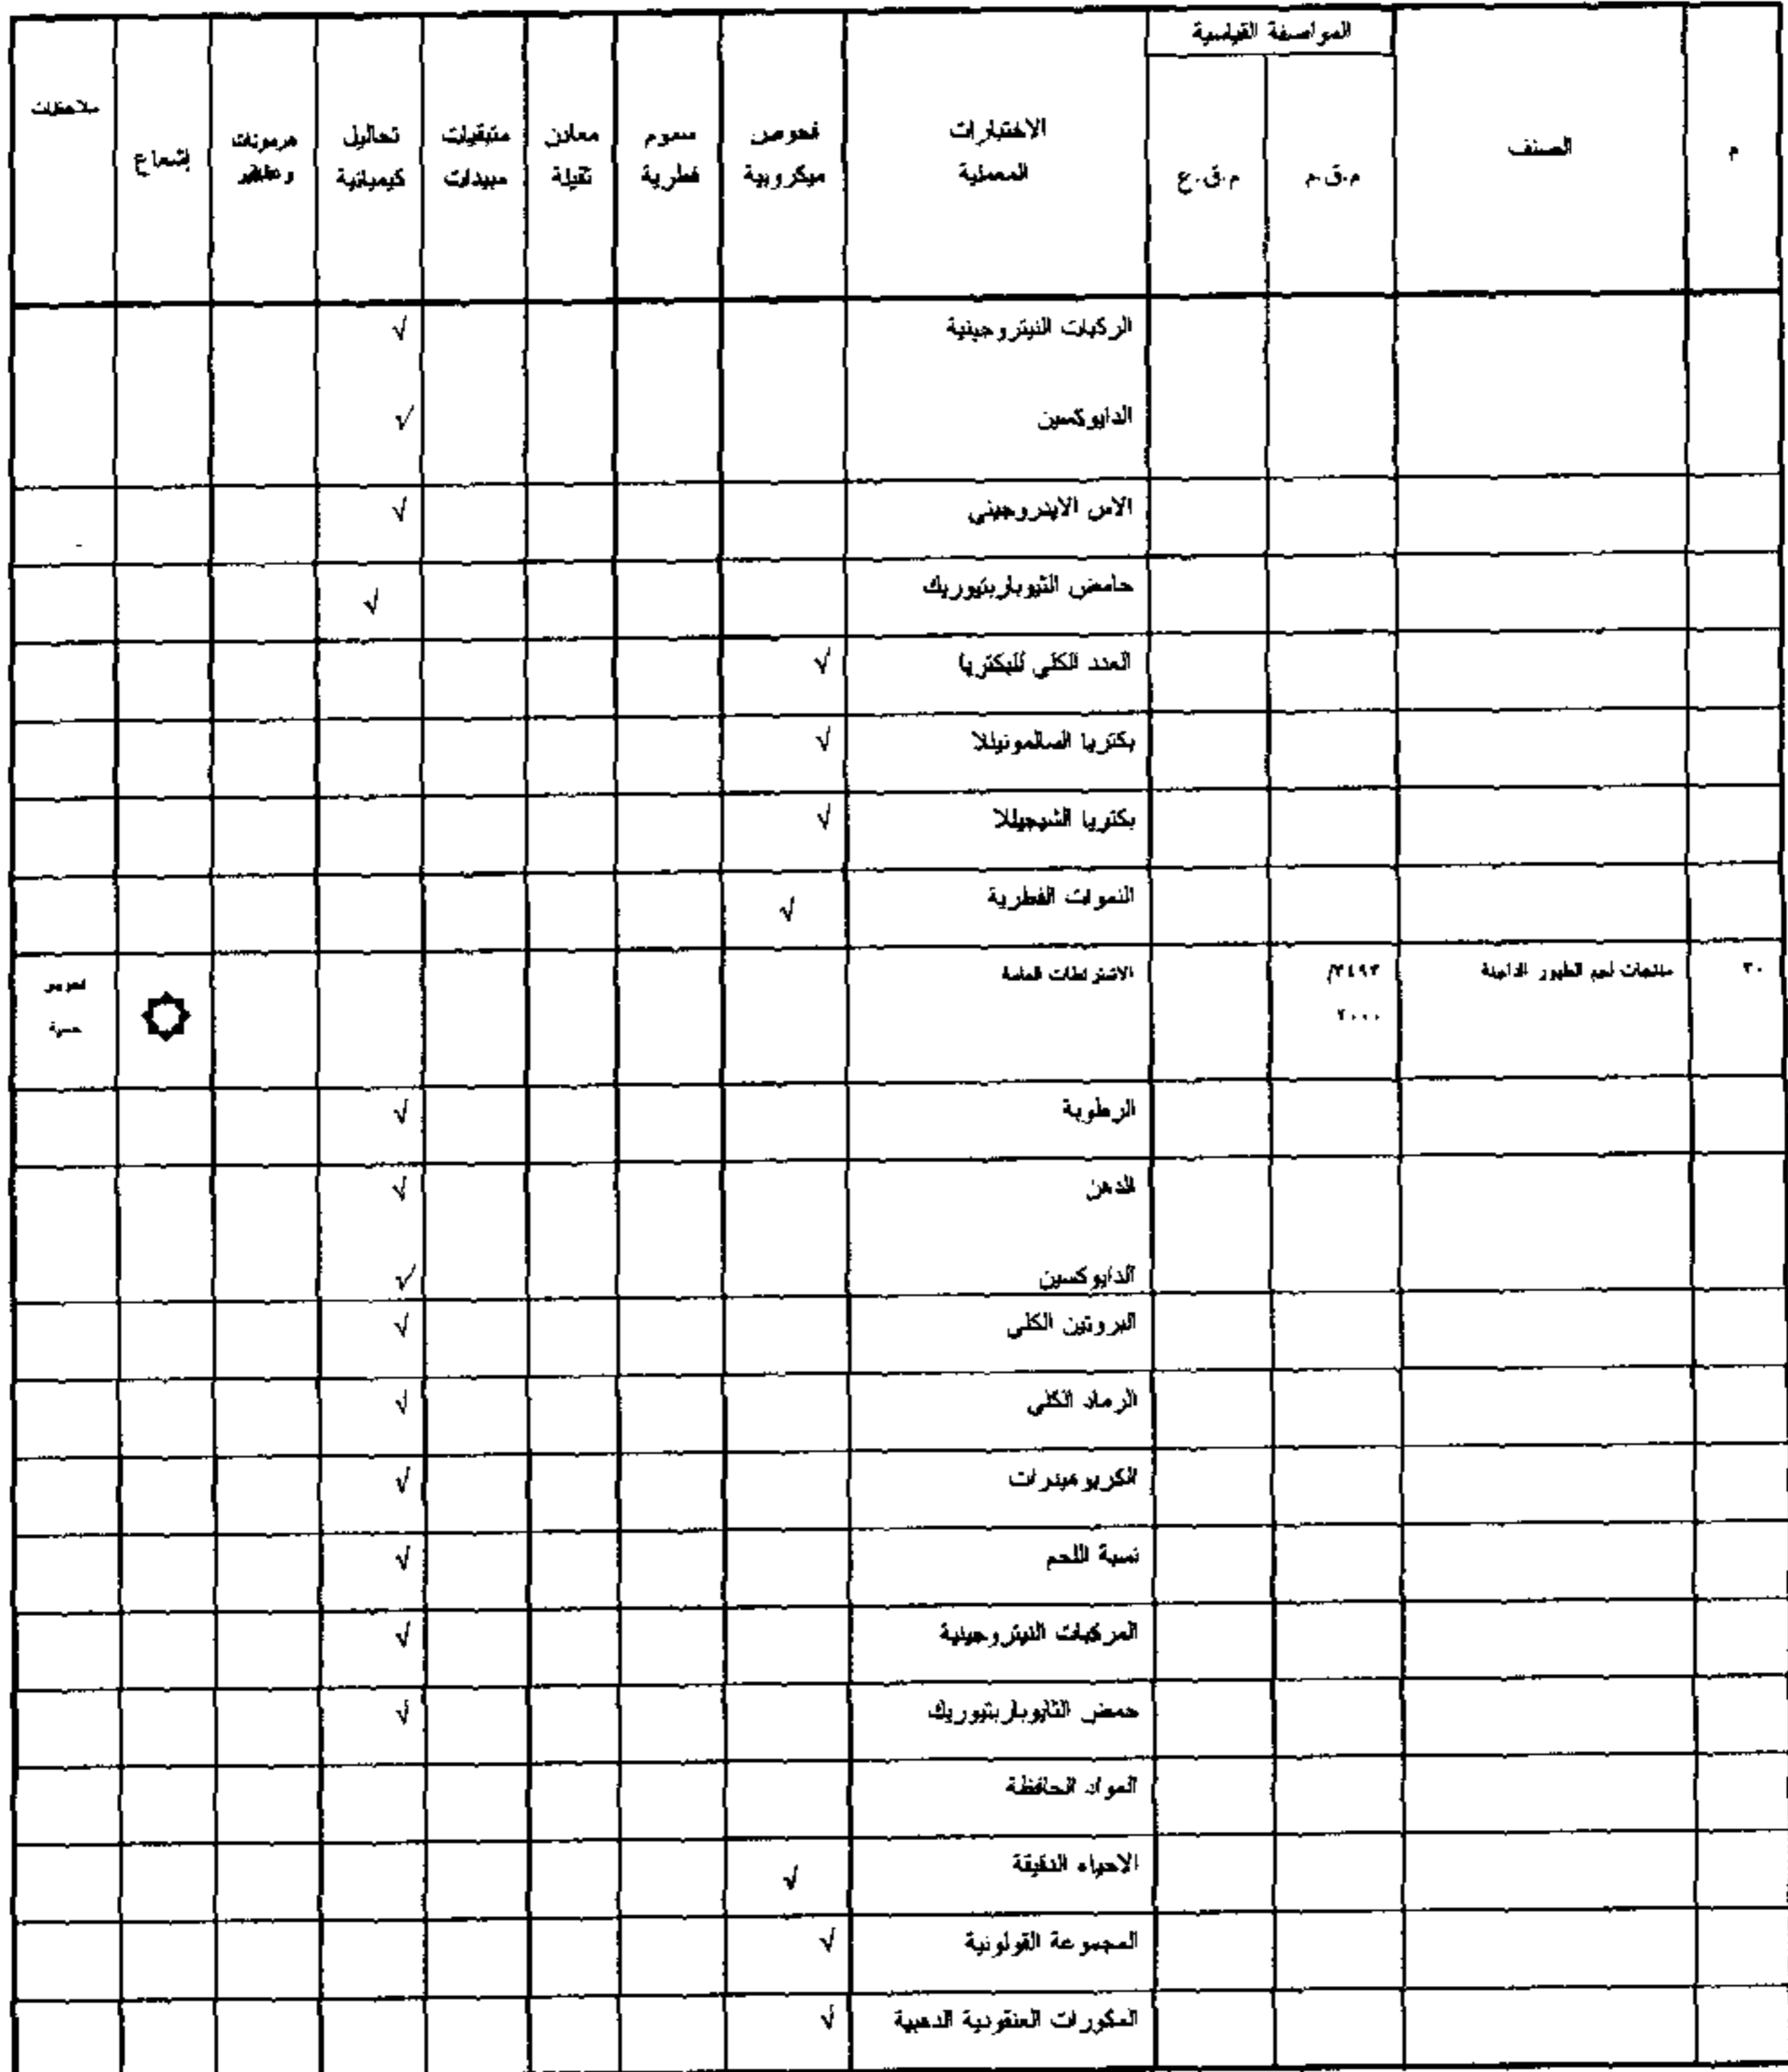 م
الصنف
المواصفة القياسية
م.ق.م
م.ق.ع
الاختبارات المعملية
فحوص ميكروبية
سموم فطرية
معادن ثقيلة
متبقيات مبيدات
تحاليل كيميائية
هرمونات وعقاقير
إشعاع
ملاحظات
الركبات النيتروجينية √
الدايوكسين √
الاس الايدروجيني √
حامض الثيوباربتيوريك √
العدد الكلي للبكتريا √
بكتريا السالمونيللا √
بكتريا الشيجيللا √
النموات الفطرية √
٣٠ منتجات لحم الطيور الداجنة ٣٤٩٣/ ٢٠٠٠ الاشتراطات العامة حسية
الرطوبة √
الدهن √
الدايوكسين √
البروتين الكلي √
الرماد الكلي √
الكربوهيدرات √
نسبة اللحم √
المركبات النيتروجينية √
حمض الثايوباربتيوريك √
المواد الحافظة
الاحياء الدقيقة √
المجموعة القولونية √
المكورات العنقودية الذهبية √